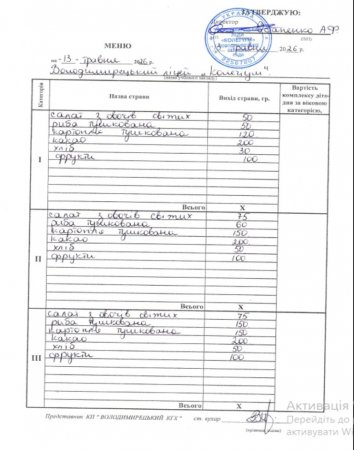 ЗАТВЕРДЖУЮ:
Директор
травня 2026 р.
МЕНЮ
на - 13 - травня 2026 р.
Володимирецький ліцей „Колегіум"
Категорія
Назва страви
Вихід страви, гр.
Вартість комплексу дітодня за віковою категорією,
І
салат з овочів свіжих 50
риба тушкована 50
картопля тушкована 120
какао 200
хліб 30
фрукти 100
Всього Х
ІІ
салат з овочів свіжих 75
риба тушкована 60
картопля тушкована 150
какао 200
хліб 50
фрукти 100
Всього Х
ІІІ
салат з овочів свіжих 75
риба тушкована 150
картопля тушкована 150
какао 200
хліб 50
фрукти 100
Всього Х
Представник КП " ВОЛОДИМИРЕЦЬКИЙ КГХ " ст. кухар
Активація
Перейдіть до
активувати Wi